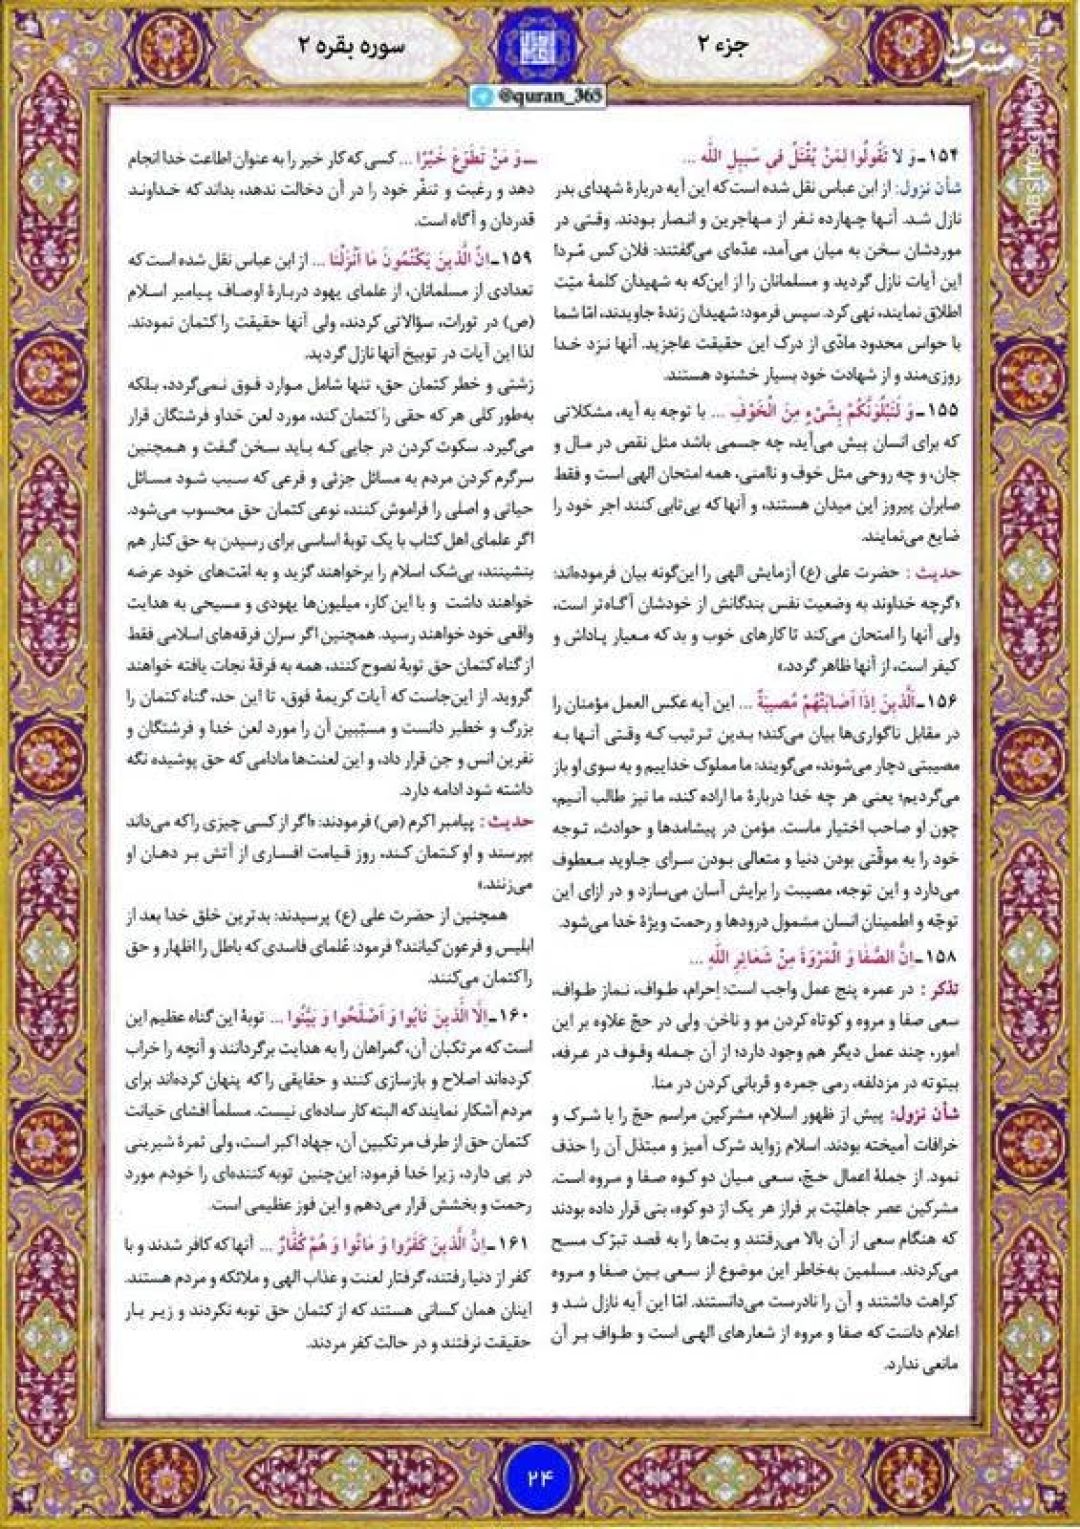 جزء ۲
سوره بقره ۲
@quran_365
مشرق
mashreghnews.ir
۱۵۴ـ وَ لا تَقُولُوا لِمَنْ يُقْتَلُ فِى سَبِيلِ اللّٰه ...
شأن نزول: از ابن عباس نقل شده است که این آیه دربارهٔ شهدای بدر
نازل شد. آنها چهارده نفر از مهاجرین و انصار بودند. وقتی در
موردشان سخن به میان می‌آمد، عدّه‌ای می‌گفتند: فلان کس مُرد!
این آیات نازل گردید و مسلمانان را از این‌که به شهیدان کلمهٔ میّت
اطلاق نمایند، نهی کرد. سپس فرمود: شهیدان زندهٔ جاویدند، امّا شما
با حواس محدود مادّی از درک این حقیقت عاجزید. آنها نزد خدا
روزی‌مند و از شهادت خود بسیار خشنود هستند.
۱۵۵ـ وَ لَنَبْلُوَنَّكُمْ بِشَىْءٍ مِنَ الْخَوْفِ ... با توجه به آیه، مشکلاتی
که برای انسان پیش می‌آید، چه جسمی باشد مثل نقص در مال و
جان، و چه روحی مثل خوف و ناامنی، همه امتحان الهی است و فقط
صابران پیروز این میدان هستند، و آنها که بی‌تابی کنند اجر خود را
ضایع می‌نمایند.
حدیث : حضرت علی (ع) آزمایش الهی را این‌گونه بیان فرموده‌اند:
«گرچه خداوند به وضعیت نفس بندگانش از خودشان آگاه‌تر است،
ولی آنها را امتحان می‌کند تا کارهای خوب و بد که معیار پاداش و
کیفر است، از آنها ظاهر گردد.»
۱۵۶ـ اَلَّذِينَ اِذَا اَصَابَتْهُمْ مُصِيبَةٌ ... این آیه عکس العمل مؤمنان را
در مقابل ناگواری‌ها بیان می‌کند؛ بدین ترتیب که وقتی آنها به
مصیبتی دچار می‌شوند، می‌گویند: ما مملوک خداییم و به سوی او باز
می‌گردیم؛ یعنی هر چه خدا دربارهٔ ما اراده کند، ما نیز طالب آنیم،
چون او صاحب اختیار ماست. مؤمن در پیشامدها و حوادث، توجه
خود را به موقّتی بودن دنیا و متعالی بودن سرای جاوید معطوف
می‌دارد و این توجه، مصیبت را برایش آسان می‌سازد و در ازای این
توجّه و اطمینان انسان مشمول درودها و رحمت ویژهٔ خدا می‌شود.
۱۵۸ـ اِنَّ الصَّفَا وَ الْمَرْوَةَ مِنْ شَعَائِرِ اللّٰهِ ...
تذکر : در عمره پنج عمل واجب است: اِحرام، طواف، نماز طواف،
سعی صفا و مروه و کوتاه کردن مو و ناخن. ولی در حجّ علاوه بر این
امور، چند عمل دیگر هم وجود دارد؛ از آن جمله وقوف در عرفه،
بیتوته در مزدلفه، رمی جمره و قربانی کردن در منا.
شأن نزول: پیش از ظهور اسلام، مشرکین مراسم حجّ را با شرک و
خرافات آمیخته بودند. اسلام زواید شرک آمیز و مبتذل آن را حذف
نمود. از جملهٔ اعمال حجّ، سعی میان دو کوه صفا و مروه است.
مشرکین عصر جاهلیّت بر فراز هر یک از دو کوه، بتی قرار داده بودند
که هنگام سعی از آن بالا می‌رفتند و بت‌ها را به قصد تبرّک مسح
می‌کردند. مسلمین به‌خاطر این موضوع از سعی بین صفا و مروه
کراهت داشتند و آن را نادرست می‌دانستند. امّا این آیه نازل شد و
اعلام داشت که صفا و مروه از شعارهای الهی است و طواف بر آن
مانعی ندارد.
ـ وَ مَنْ تَطَوَّعَ خَيْرًا ... کسی که کار خیر را به عنوان اطاعت خدا انجام
دهد و رغبت و تنفّر خود را در آن دخالت ندهد، بداند که خداوند
قدردان و آگاه است.
۱۵۹ـ اِنَّ الَّذِينَ يَكْتُمُونَ مَا اَنْزَلْنَا ... از ابن عباس نقل شده است که
تعدادی از مسلمانان، از علمای یهود دربارهٔ اوصاف پیامبر اسلام
(ص) در تورات، سؤالاتی کردند، ولی آنها حقیقت را کتمان نمودند.
لذا این آیات در توبیخ آنها نازل گردید.
زشتی و خطر کتمان حق، تنها شامل موارد فوق نمی‌گردد، بلکه
به‌طور کلی هر که حقی را کتمان کند، مورد لعن خدا و فرشتگان قرار
می‌گیرد. سکوت کردن در جایی که باید سخن گفت و همچنین
سرگرم کردن مردم به مسائل جزئی و فرعی که سبب شود مسائل
حیاتی و اصلی را فراموش کنند، نوعی کتمان حق محسوب می‌شود.
اگر علمای اهل کتاب با یک توبهٔ اساسی برای رسیدن به حق کنار هم
بنشینند، بی‌شک اسلام را برخواهند گزید و به امّت‌های خود عرضه
خواهند داشت و با این کار، میلیون‌ها یهودی و مسیحی به هدایت
واقعی خود خواهند رسید. همچنین اگر سران فرقه‌های اسلامی فقط
از گناه کتمان حق توبهٔ نصوح کنند، همه به فرقهٔ نجات یافته خواهند
گروید. از این‌جاست که آیات کریمهٔ فوق، تا این حد، گناه کتمان را
بزرگ و خطیر دانست و مسبّبین آن را مورد لعن خدا و فرشتگان و
نفرین انس و جن قرار داد، و این لعنت‌ها مادامی که حق پوشیده نگه
داشته شود ادامه دارد.
حدیث : پیامبر اکرم (ص) فرمودند: «اگر از کسی چیزی را که می‌داند
بپرسند و او کتمان کند، روز قیامت افساری از آتش بر دهان او
می‌زنند.»
همچنین از حضرت علی (ع) پرسیدند: بدترین خلق خدا بعد از
ابلیس و فرعون کیانند؟ فرمود: عُلمای فاسدی که باطل را اظهار و حق
را کتمان می‌کنند.
۱۶۰ـ اِلَّا الَّذِينَ تَابُوا وَ اَصْلَحُوا وَ بَيَّنُوا ... توبهٔ این گناه عظیم این
است که مرتکبان آن، گمراهان را به هدایت برگردانند و آنچه را خراب
کرده‌اند اصلاح و بازسازی کنند و حقایقی را که پنهان کرده‌اند برای
مردم آشکار نمایند که البته کار ساده‌ای نیست. مسلماً افشای خیانت
کتمان حق از طرف مرتکبین آن، جهاد اکبر است، ولی ثمرهٔ شیرینی
در پی دارد، زیرا خدا فرمود: این‌چنین توبه کننده‌ای را خودم مورد
رحمت و بخشش قرار می‌دهم و این فوز عظیمی است.
۱۶۱ـ اِنَّ الَّذِينَ كَفَرُوا وَ مَاتُوا وَ هُمْ كُفَّارٌ ... آنها که کافر شدند و با
کفر از دنیا رفتند، گرفتار لعنت و عذاب الهی و ملائکه و مردم هستند.
اینان همان کسانی هستند که از کتمان حق توبه نکردند و زیر بار
حقیقت نرفتند و در حالت کفر مردند.
۲۴